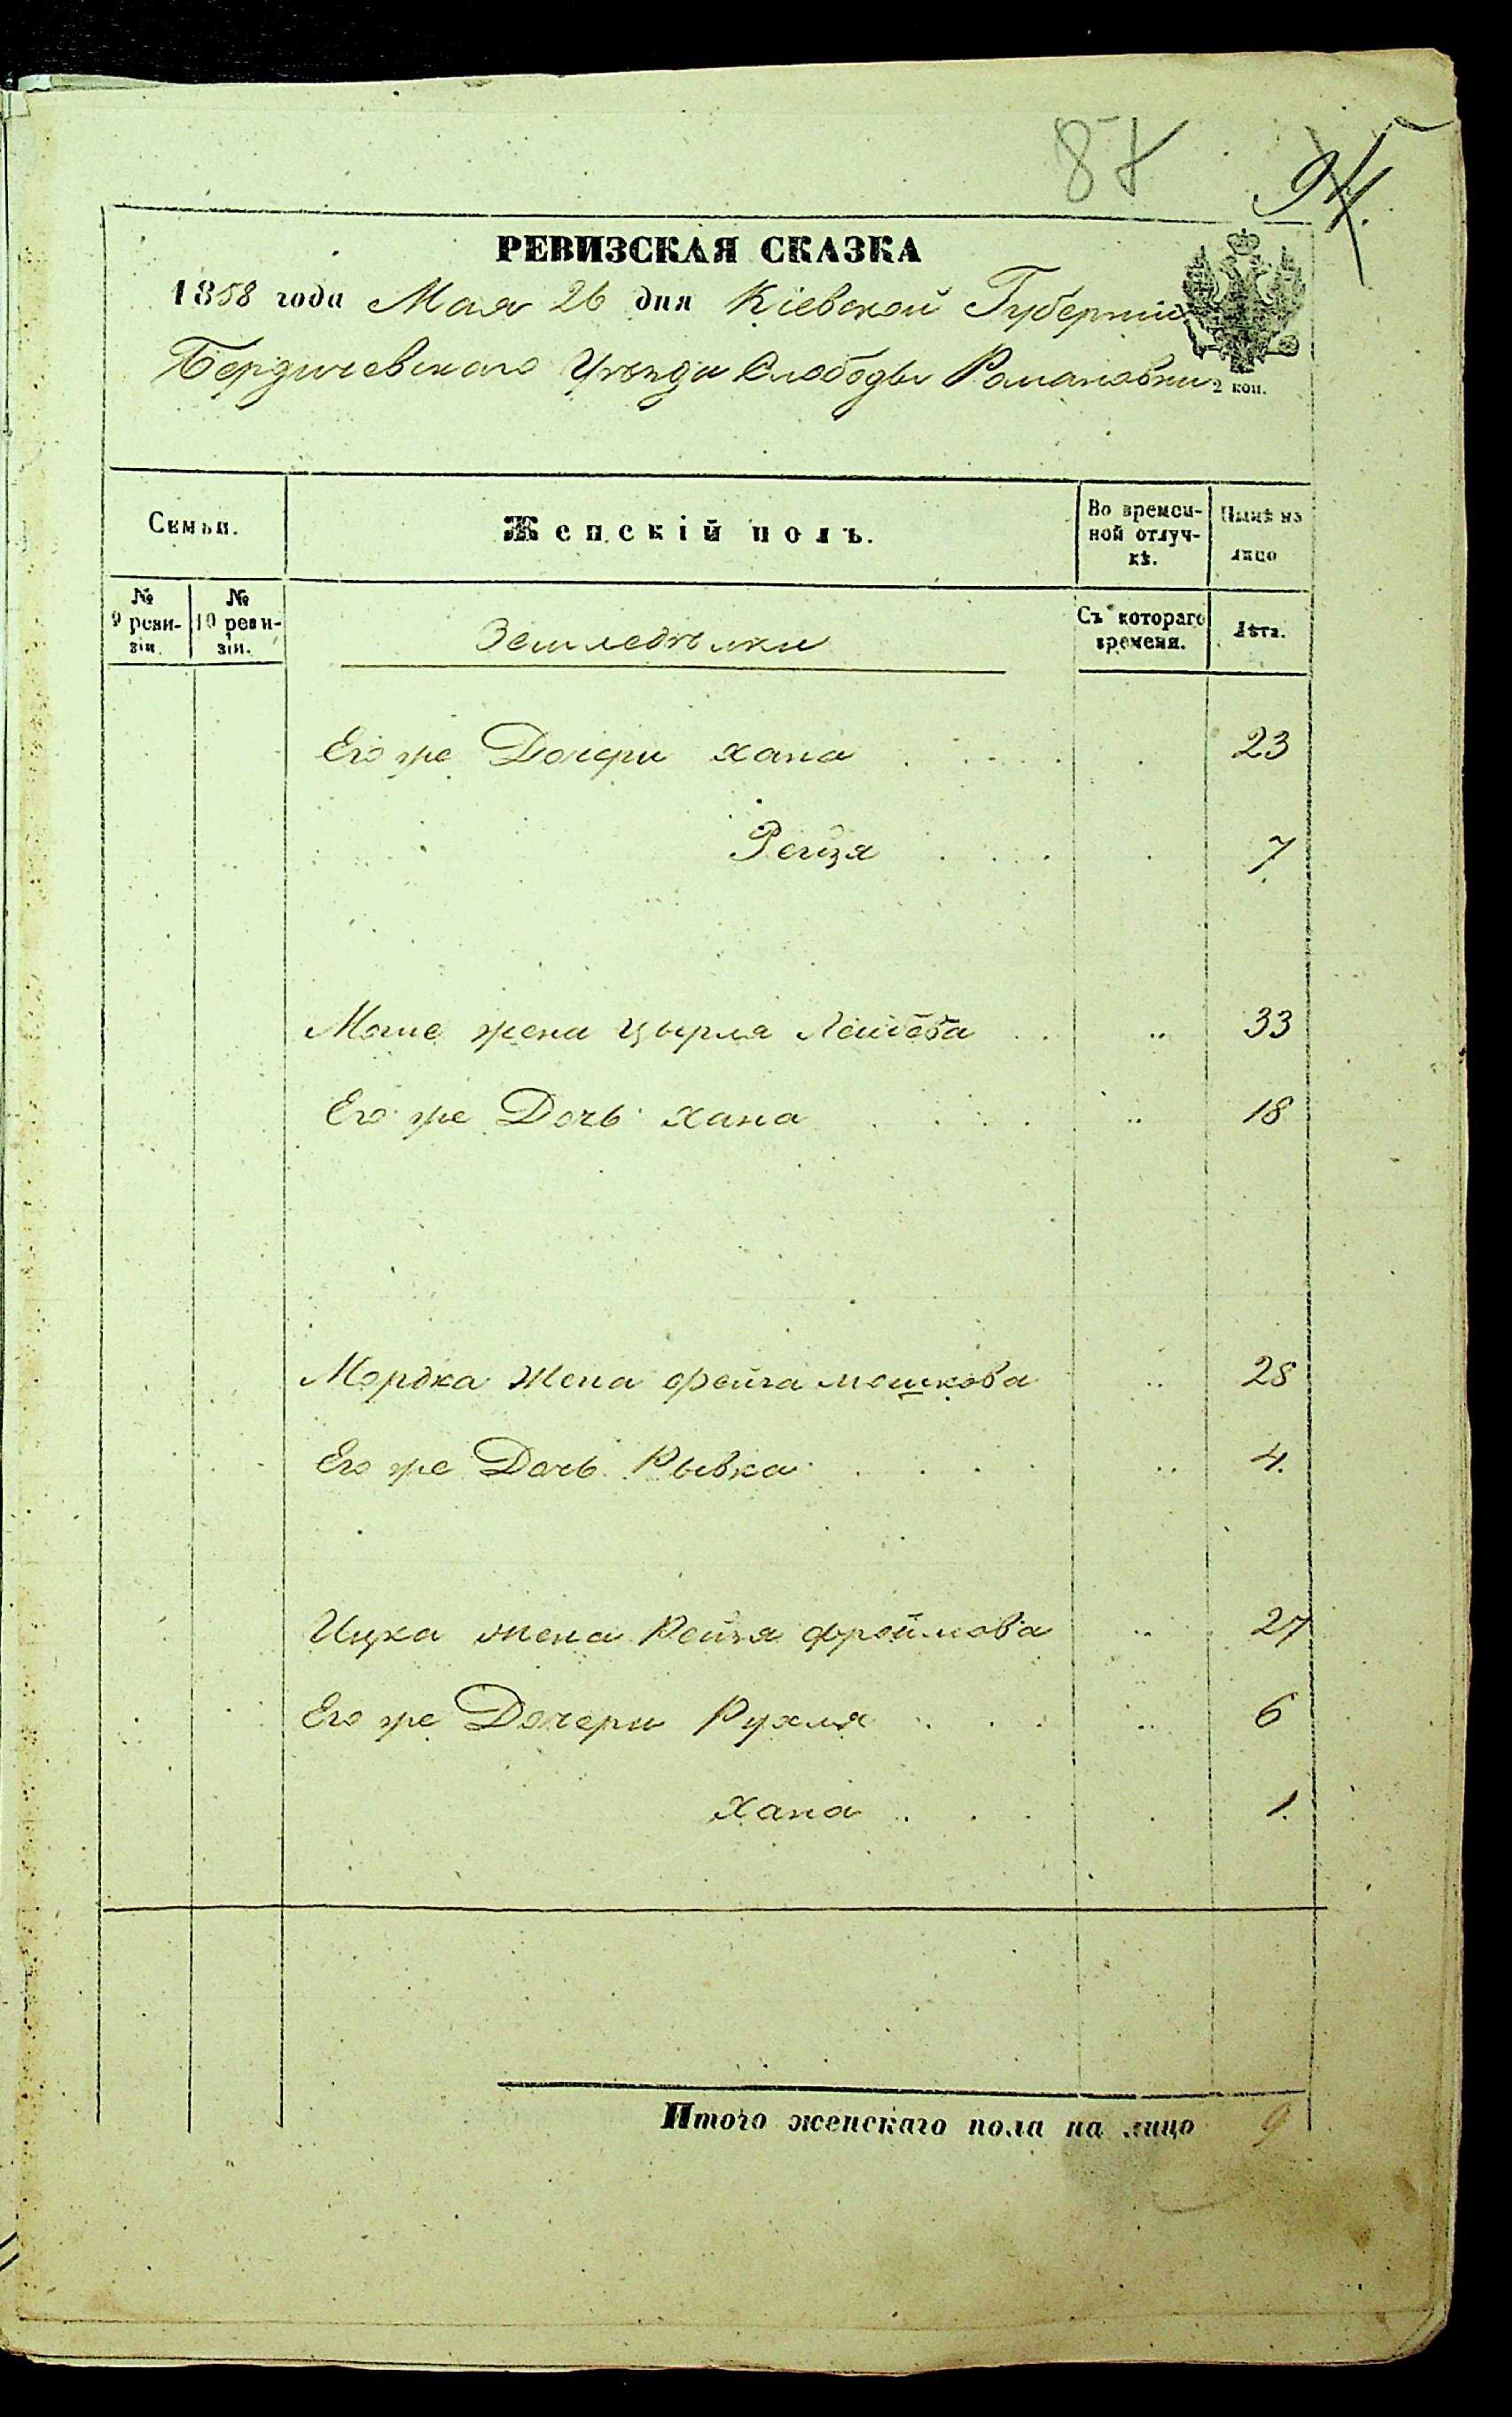 87
94.
РЕВИЗСКАЯ СКАЗКА
1858 года Мая 26 дня Кіевской Губерніи
Бердичевскаго Уѣзда Слободы Романовки
2 коп.
Семьи.
Женскій полъ.
Во времен-
ной отлуч-
кѣ.
Нынѣ на
лицо
№
9 реви-
зіи.
№
10 реви-
зіи.
Земледѣльцы
Съ котораго
времени.
Лѣта.
Его же Дочери Хана 23
Рейзя 7
Мошe жена Цырля Лейбова 33
Его же Дочь Хана 18
Мордка Жена Фейга Мошкова 28
Его же Дочь Рывка 4.
Ицка жена Рейзя Фроймова 27
Его же Дочери Рухля 6
Хана 1.
Итого женскаго пола на лицо 9